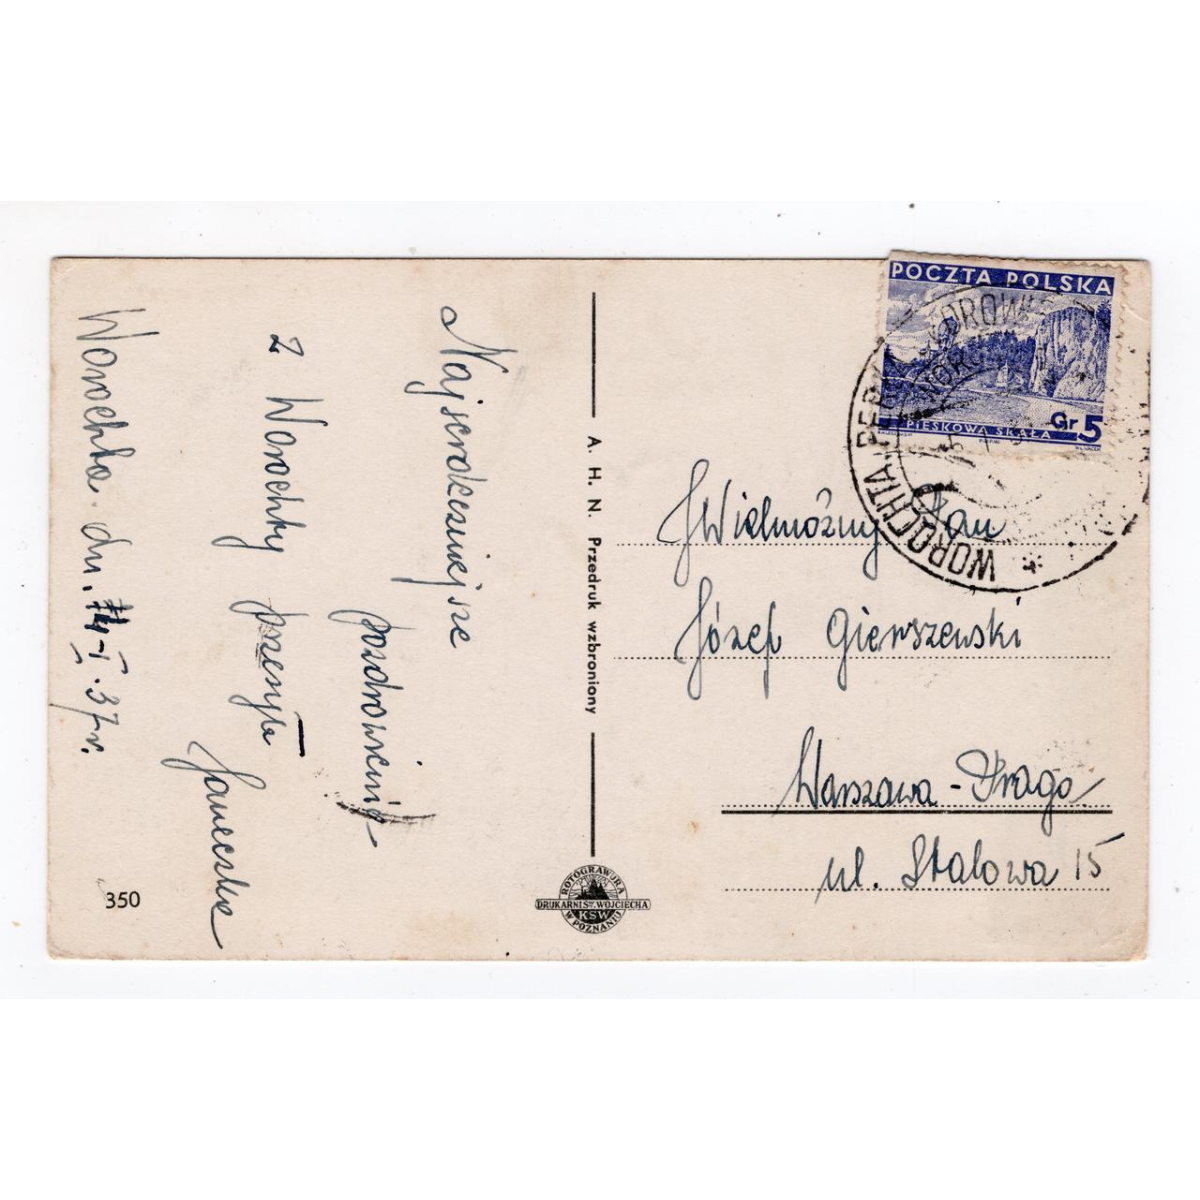 Worochta dn. 14-I.37r.
Najserdeczniejsze
pozdrowienia
z Worochty przesyła
Janeczka
350
A. H. N. Przedruk wzbroniony
ROTOGRAWURA
DRUKARNI ŚW. WOJCIECHA
KSW
W POZNANIU
POCZTA POLSKA
PIESKOWA SKAŁA
Gr 5
WOROCHTA
Wielmożny Pan
Józef Gierszewski
Warszawa-Praga
ul. Stalowa 15